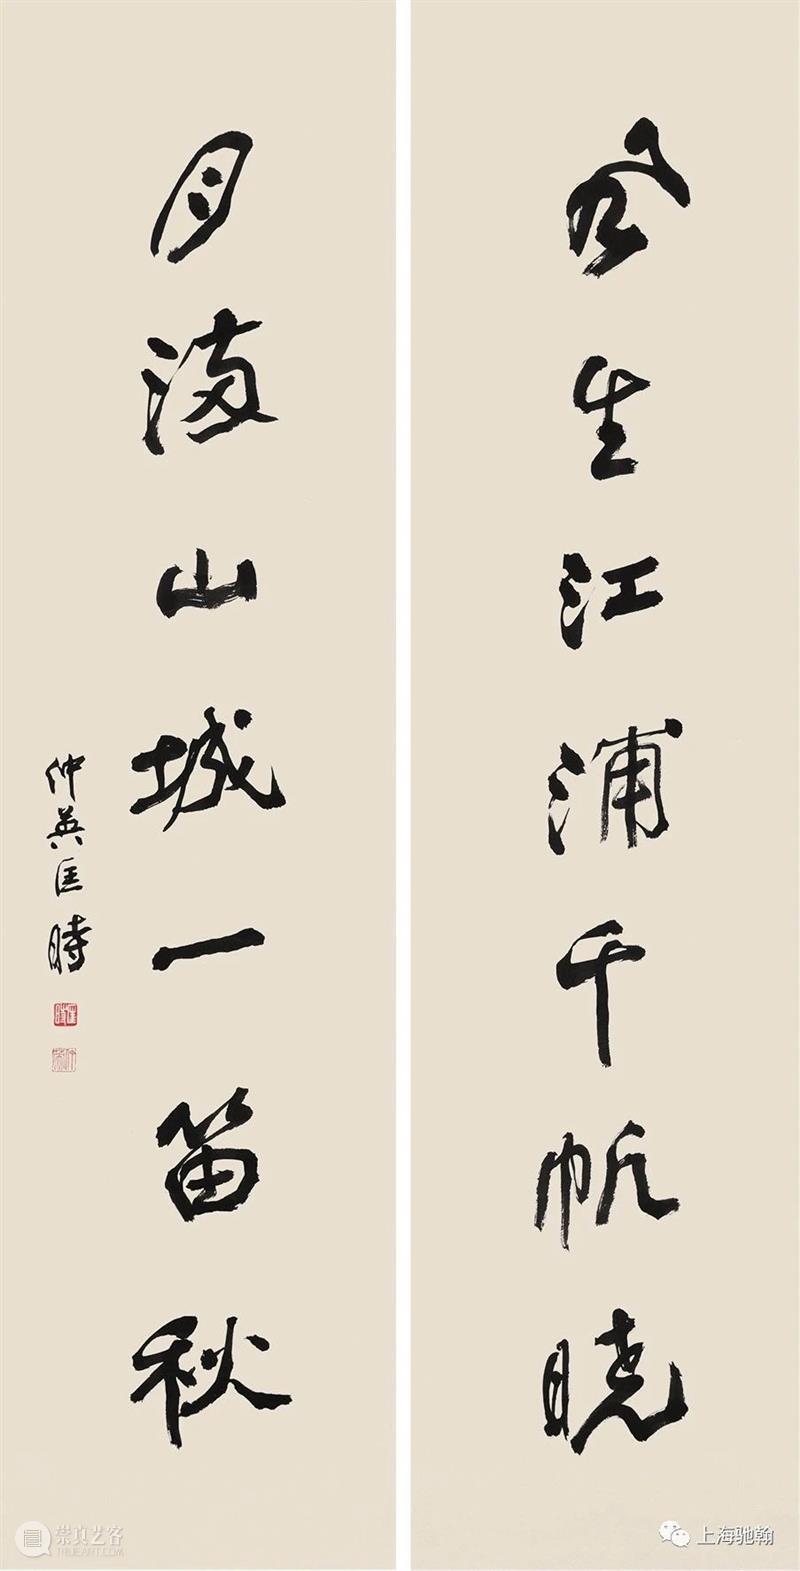 风生江浦千帆晓
月满山城一笛秋
仲英匡時
崇真艺客
TRUEART.COM
上海驰翰